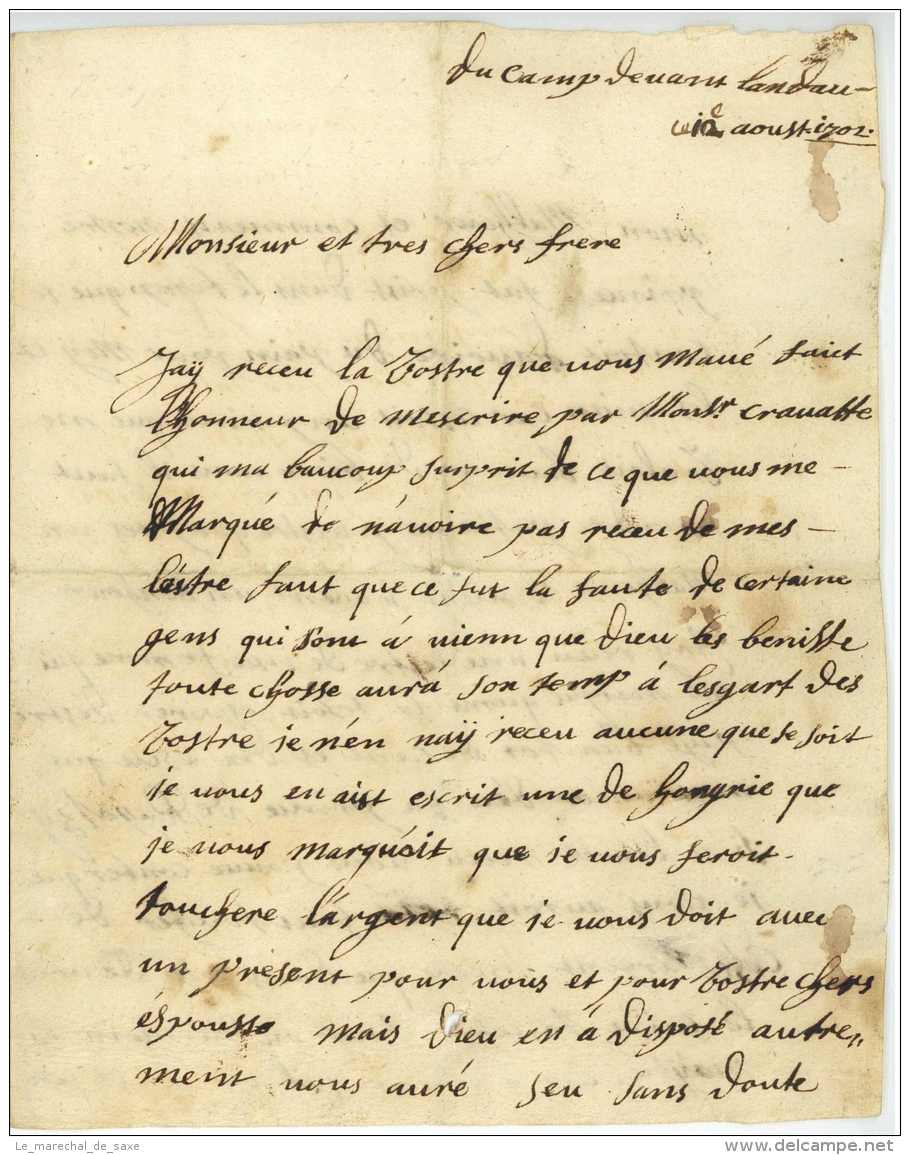 du camp devant landau
12e aoust 1702.
Monsieur et tres chers frere
Jaÿ receu la Vostre que vous mavé faict
lhonneur de mescrire par Monsr. cravatte
qui ma baucoup surprit de ce que vous me
Marqué de návoire pas receu de mes
léstre faut que ce fut la faute de certaine
gens qui sont á vienn que dieu les benisse
toute chosse aurá son temp á lesgart des
Vostre je nén naÿ receu aucune que se soit
je vous en aist escrit une de hongrie que
je vous marquoit que je vous feroit
touchere lárgent que je vous doit avec
un présent pour vous et pour Vostre chers
éspousse mais dieu en á disposé autre„
ment vous auré seu sans doute
Le_marechal_de_saxe
delcampe.net